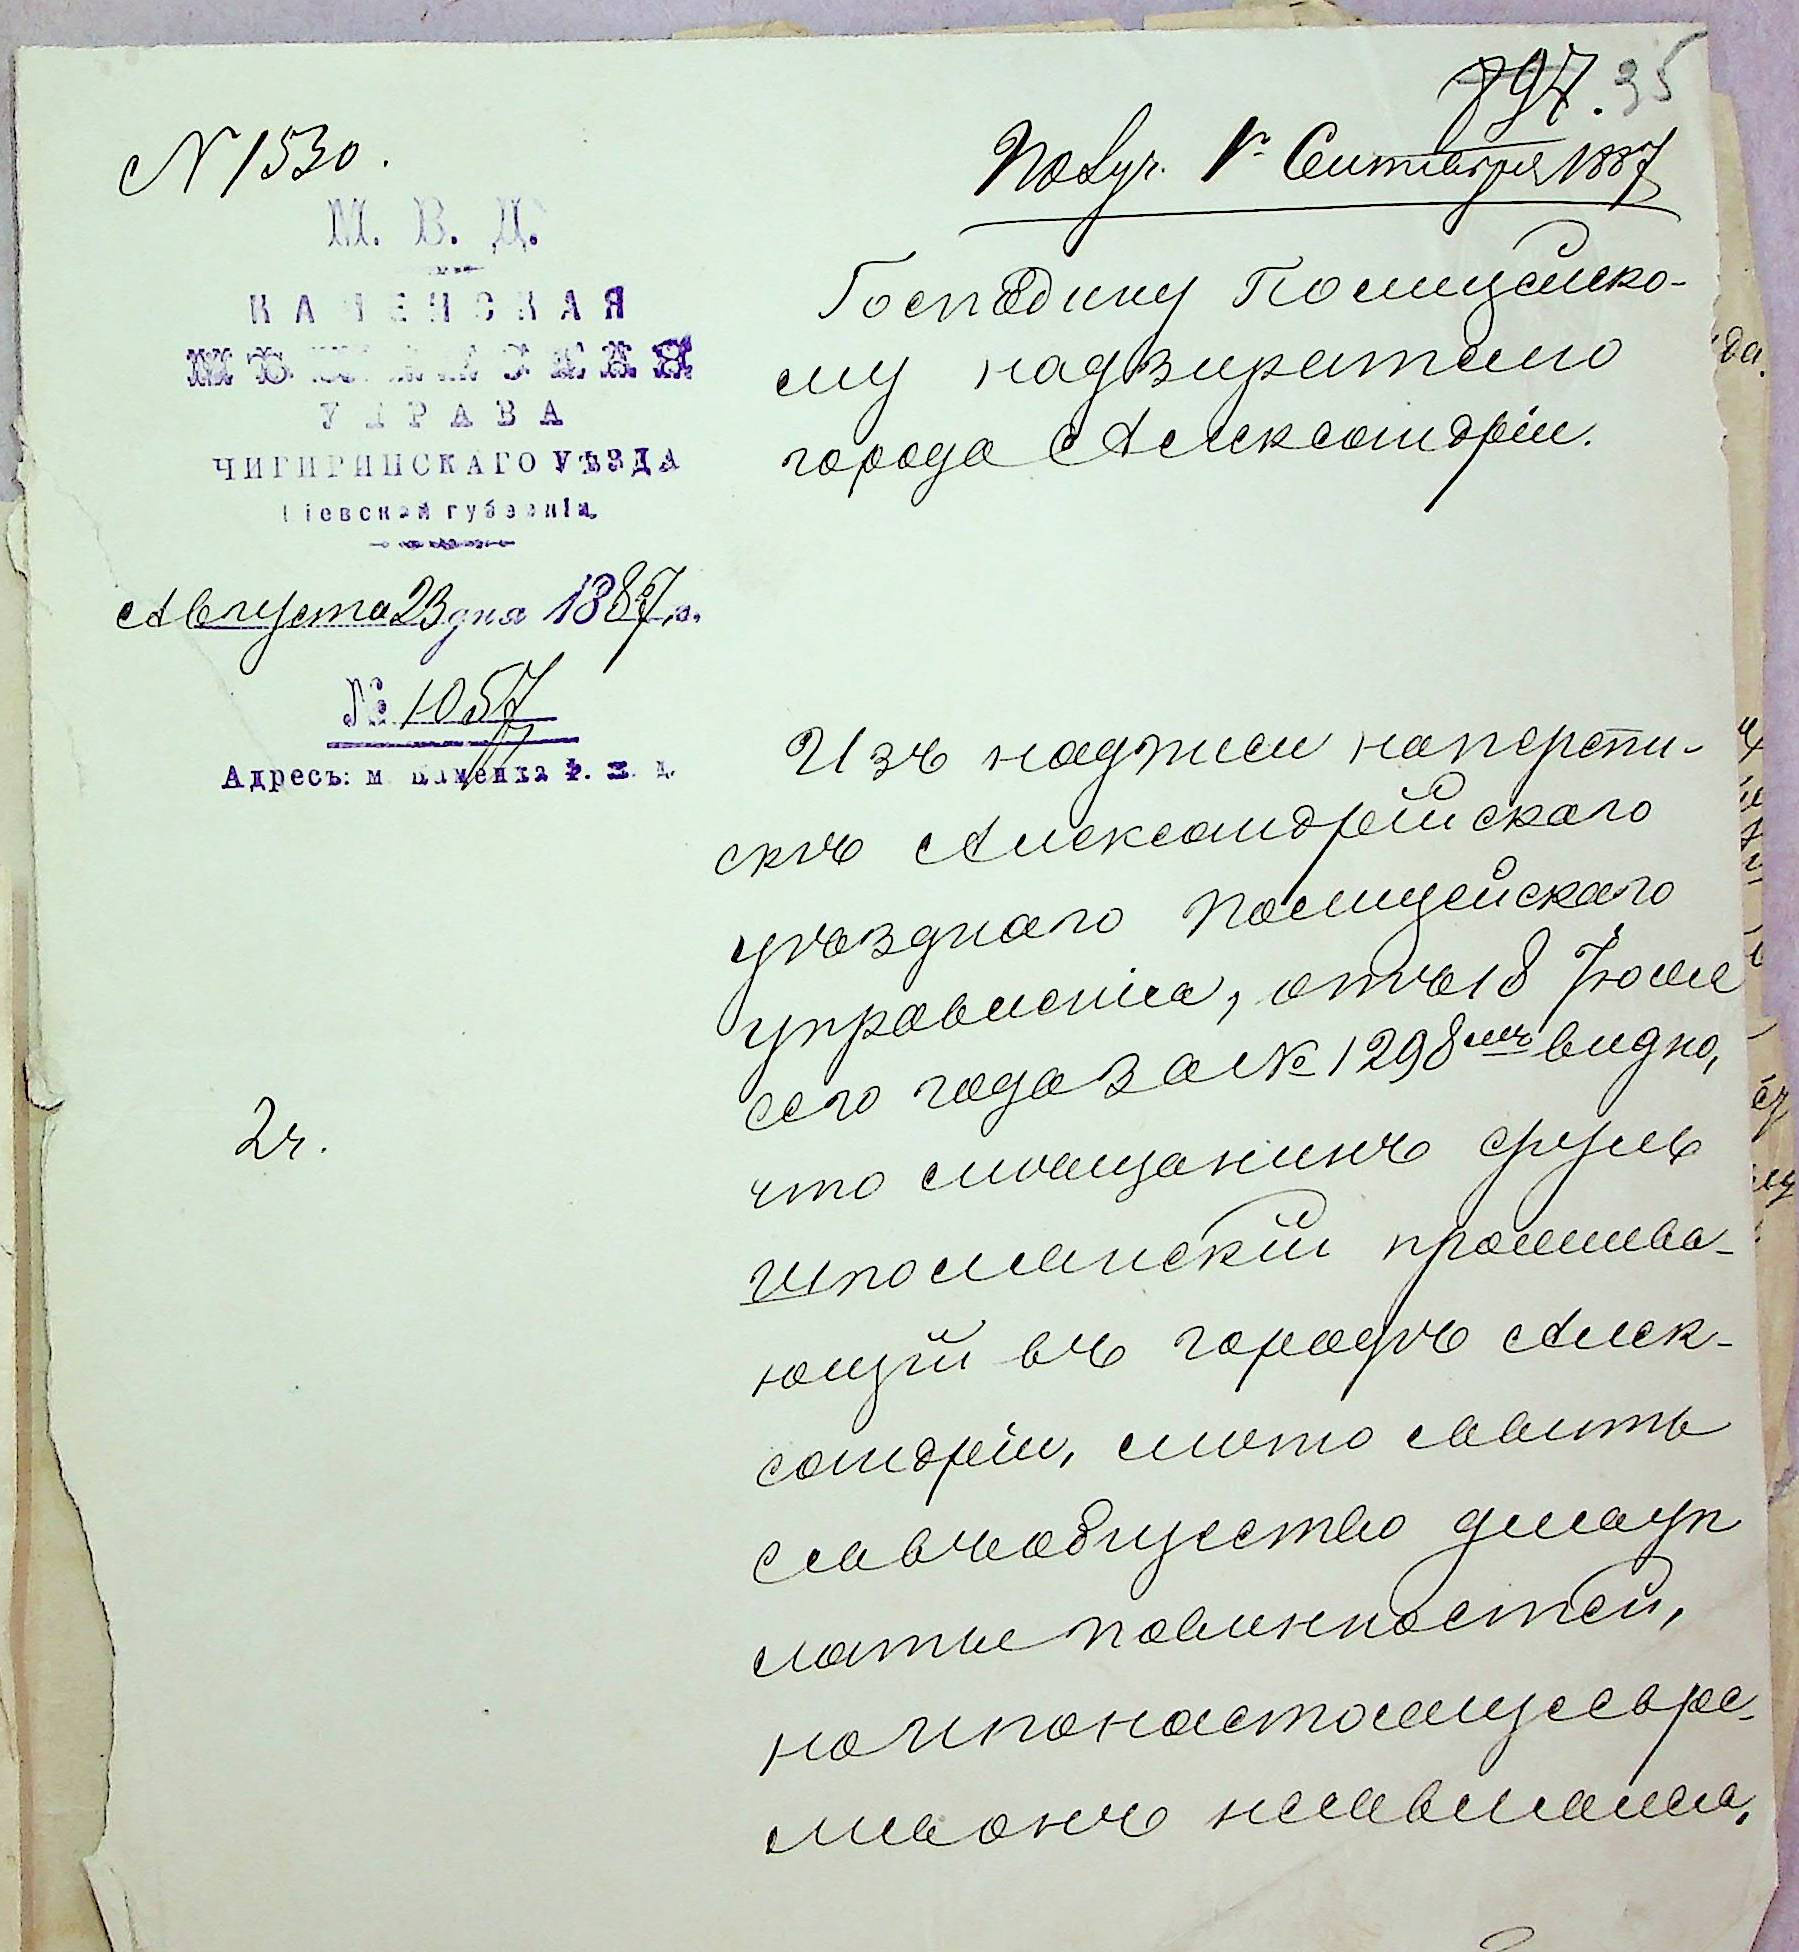 797. 35
N 1530.
Получ. 1 Сентября 1887
М. В. Д.
КАМЕНСКАЯ
МѢЩАНСКАЯ
УПРАВА
ЧИГИРИНСКАГО УѢЗДА
Кіевской губерніи.
Августа 23 дня 1887 г.
№ 1057
Адресъ: м. Каменка Ф. ж. д.
Господину Полицейско-
му надзирателю
города Александріи.
Изъ надписи наперепи-
скѣ Александрійскаго
уѣзднаго Полицейскаго
управленія, отъ 18 Іюля
сего года за № 1298мъ видно,
2ч.
что мѣщанинъ Сруль
Шполянскій прожива-
ющій въ городѣ Алек-
сандріи, имѣто явить
ся въ общество для уп
латы повинностей,
но ипонастоящее вре-
мя онъ неявился,